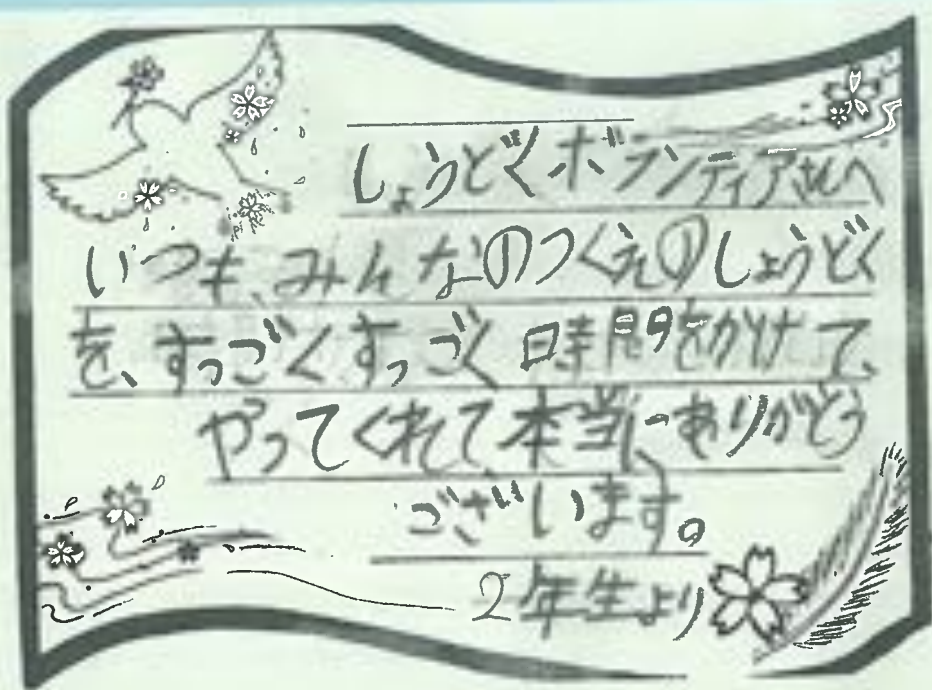 しょうどくボランティアさんへ
いつも、みんなのつくえのしょうどく
を、すっごくすっごく時間をかけて、
やってくれて、本当にありがとう
ございます。
2年生より